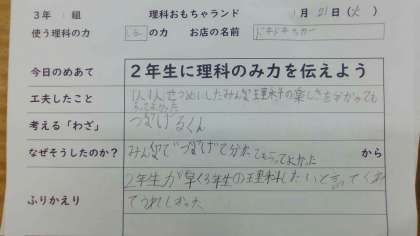 3年 組 理科おもちゃランド 月 21日(火)
使う理科の力 の力 お店の名前
今日のめあて 2年生に理科のみ力を伝えよう
工夫したこと 1人1人せつめいしたみんな理科の楽しさをわかっても
らってよかった
考える「わざ」 つなげるくん
なぜそうしたのか? みんなでつなげて分かってもらってよかった から
ふりかえり 2年生が早く3年生の理科したいと言ってくれ
てうれしかった